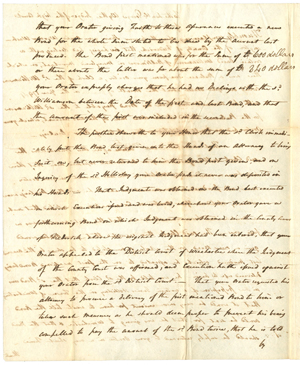 that your Orator giving Faith to these Assurances executed a new
Bond for the whole sum stated to be due by the Account last
produced. The Bond first mentioned was for the sum of 600 dollars
or there about the latter was for about the sum of 240 dollars
your Orator expressly charges that he had no dealings with the sd
Williamson between the Date of the first and last Bond, and that
the amount of the first was included in the second.
The first
but the Bond into the Hands of an Attorney to bring
suit on, but never returned to him the Bond first given, and on
Inquiry of the sd your Orator finds it never was deposited in
his Hands. That Judgment was obtained on the Bond last executed
and about your Orator gave a
forthcoming Bond on which Judgment was obtained in the County Court
of Frederick where the original Judgment had been entered, that your
Orator appealed to the District Court of Winchester when the Judgment
of the County Court was affirmed, and Execution hath issued against
your Orator from the sd District Court. That your Orator requested his
Attorney to procure a delivery of the first mentioned Bond to him or
take such measures as he should deem proper to prevent his being
compelled to pay the amount of the sd Bond twice, that he is told
by